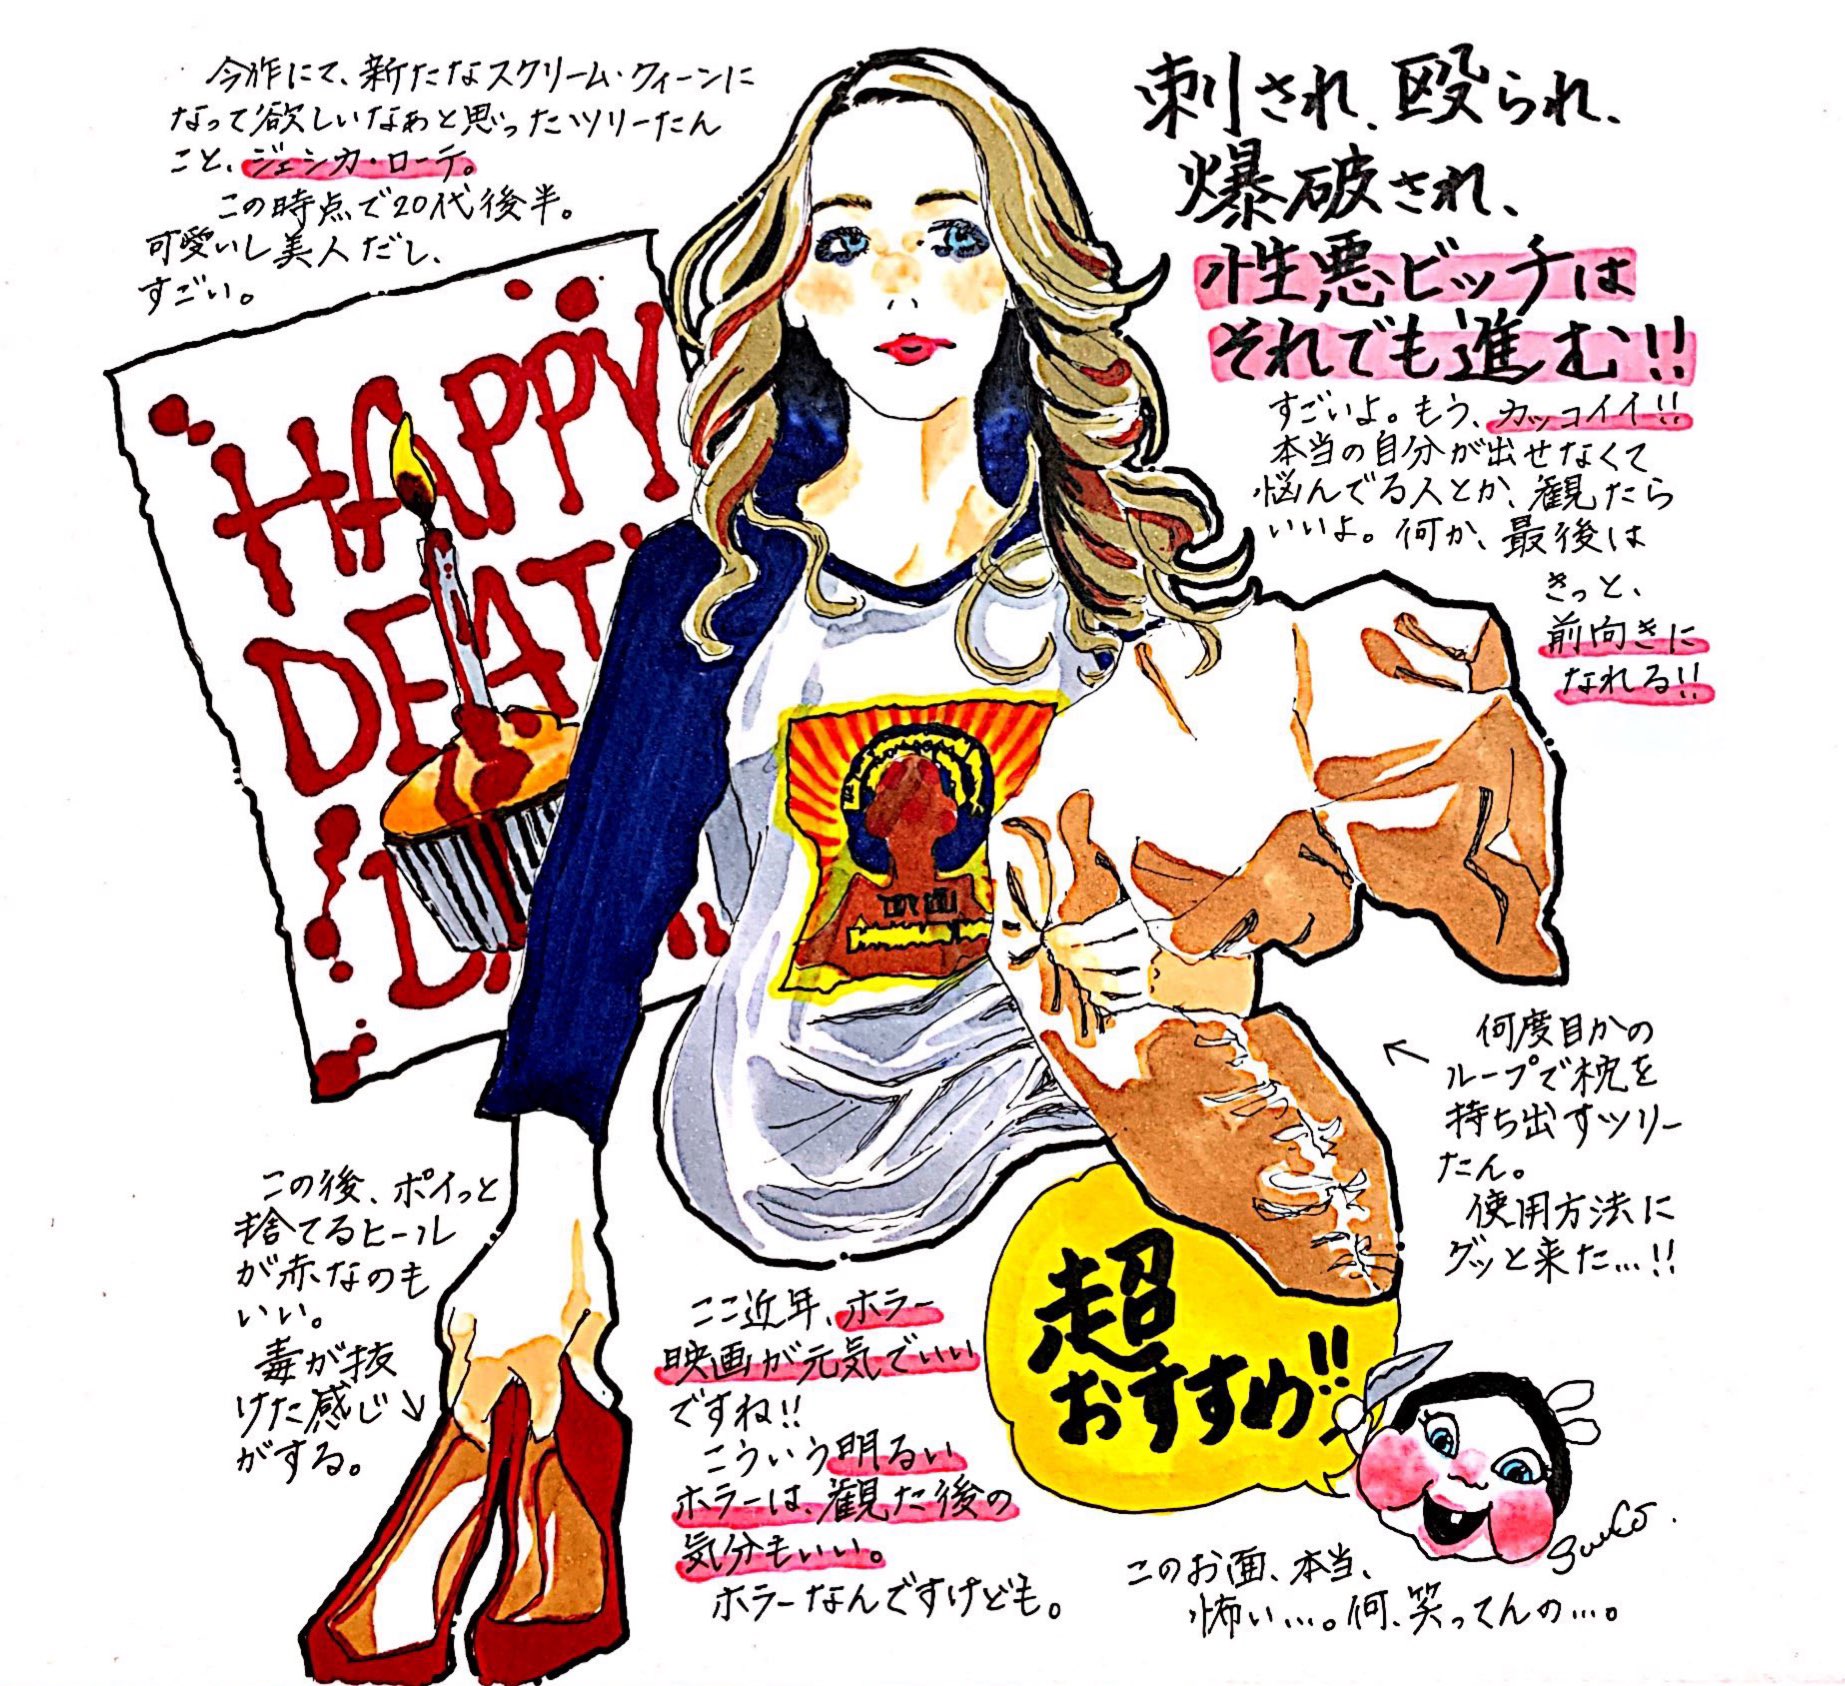 今作にて、新たなスクリーム・クィーンに
なって欲しいなぁと思ったツリーたん
こと、ジェシカ・ローテ。
この時点で20代後半。
可愛いし美人だし、
すごい。
刺され、殴られ、
爆破され、
性悪ビッチは
それでも進む!!
すごいよ。もう、カッコイイ!!
本当の自分が出せなくて
悩んでる人とか、観たら
いいよ。何か、最後は
きっと、
前向きに
なれる!!
HAPPY
DEAT
D
何度目かの
ループで枕を
持ち出すツリー
たん。
使用方法に
グッと来た…!!
この後、ポイっと
捨てるヒール
が赤なのも
いい。
毒が抜
けた感じ↓
がする。
ここ近年、ホラー
映画が元気でいい
ですね!!
こういう明るい
ホラーは、観た後の
気分もいい。
ホラーなんですけども。
超
おすすめ!!
このお面、本当、
怖い…。何、笑ってんの…。